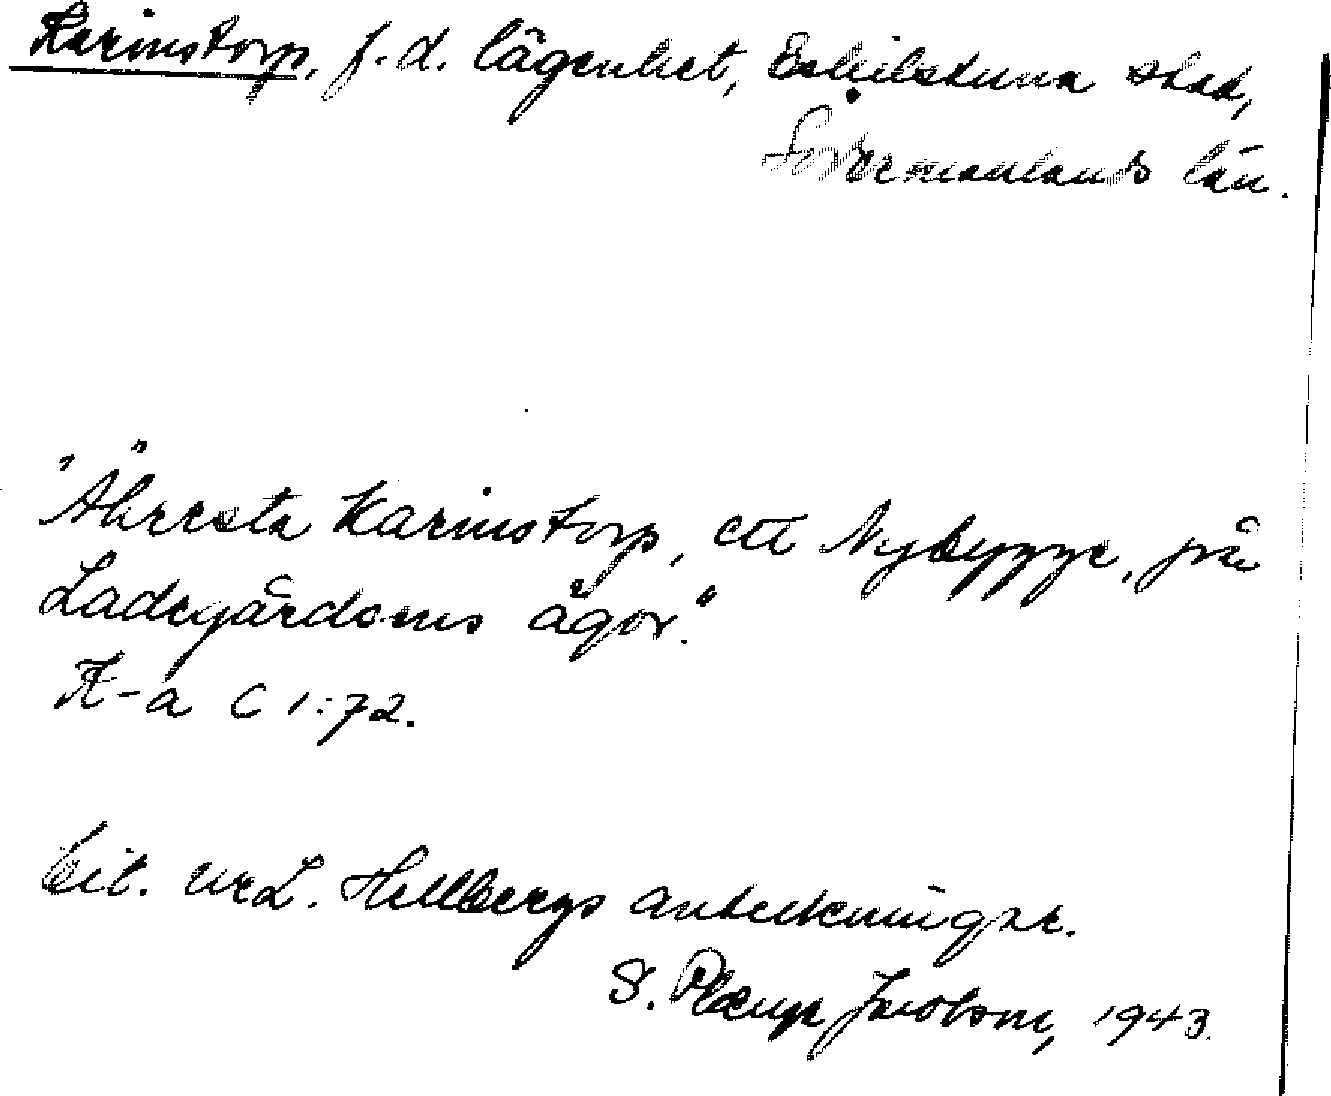 Karinstorp, f.d. lägenhet, Eskilstuna stad,
Södermanlands län.
"Åhresta Karinstorp, ett Nybygge, på
Ladegårdsens ägor."
K-a C 1:72.
Cit. ur L. Hellbergs anteckningar.
S. Jacobson, 1943.